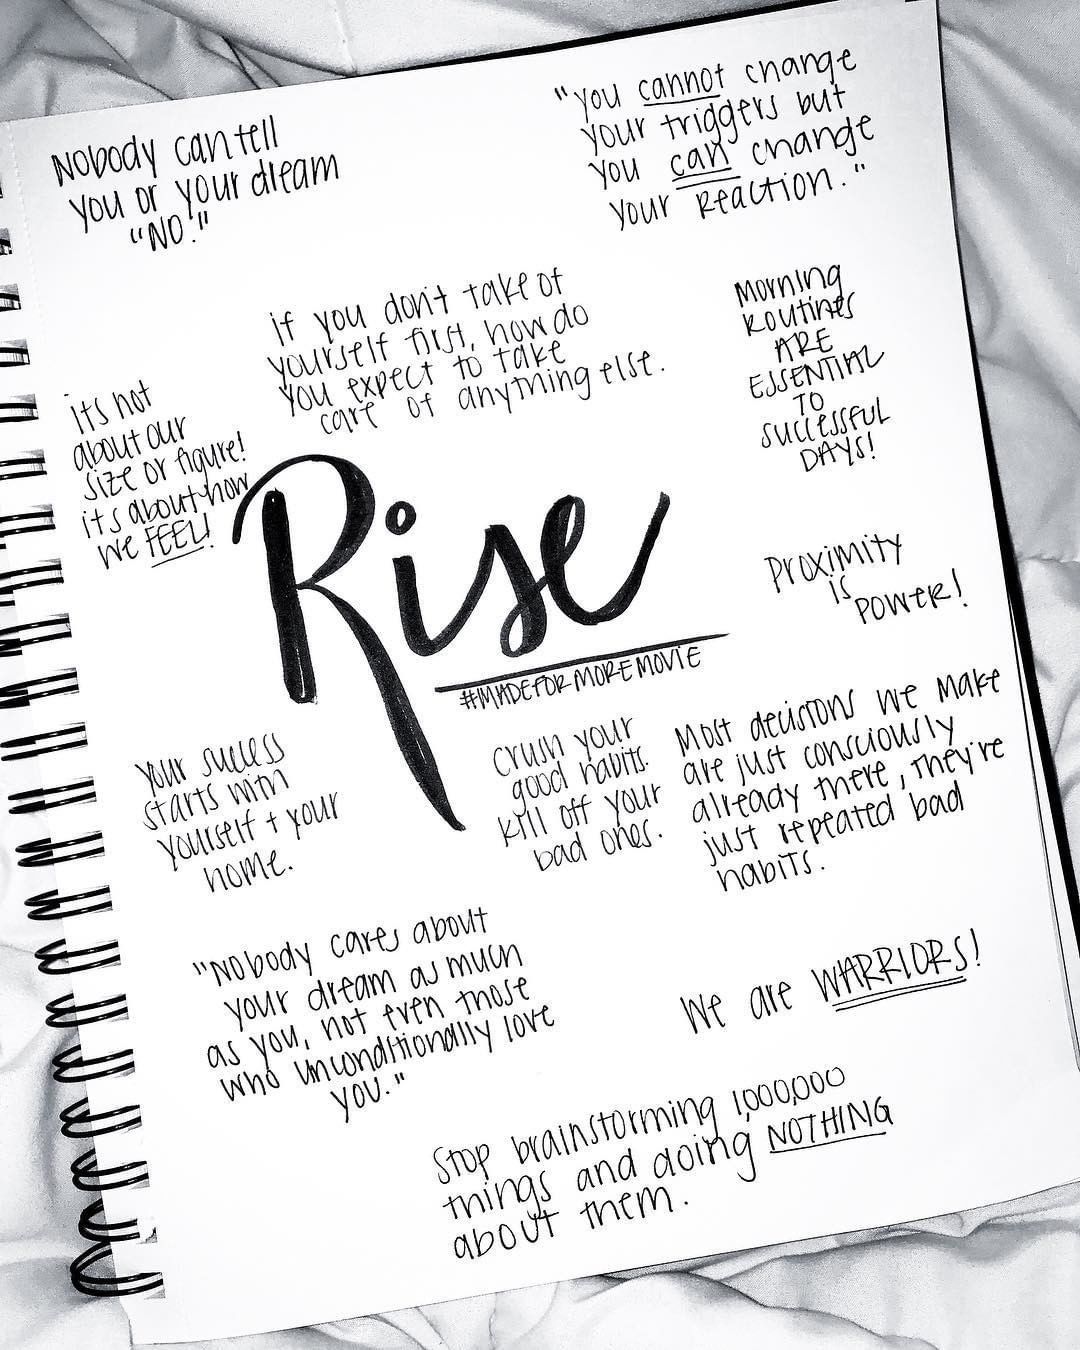 Nobody can tell
you or your dream
"NO."
"you cannot change
your triggers but
you can change
your Reaction."
if you don't take of
yourself first, how do
you expect to take
care of anything else.
Morning
Routines
ARE
ESSENTIAL
TO
successful
DAYS!
it's not
about our
size or figure!
it's about how
we FEEL!
Rise
#MADEFORMOREMOVIE
Proximity
is
Power!
Your success
starts with
yourself + your
home.
Crush your
good habits.
Kill off your
bad ones.
Most decisions we make
are just consciously
already there, they're
just repeated bad
habits.
"Nobody cares about
your dream as much
as you, not even those
who unconditionally love
you."
We are WARRIORS!
Stop brainstorming 1,000,000
things and doing NOTHING
about them.